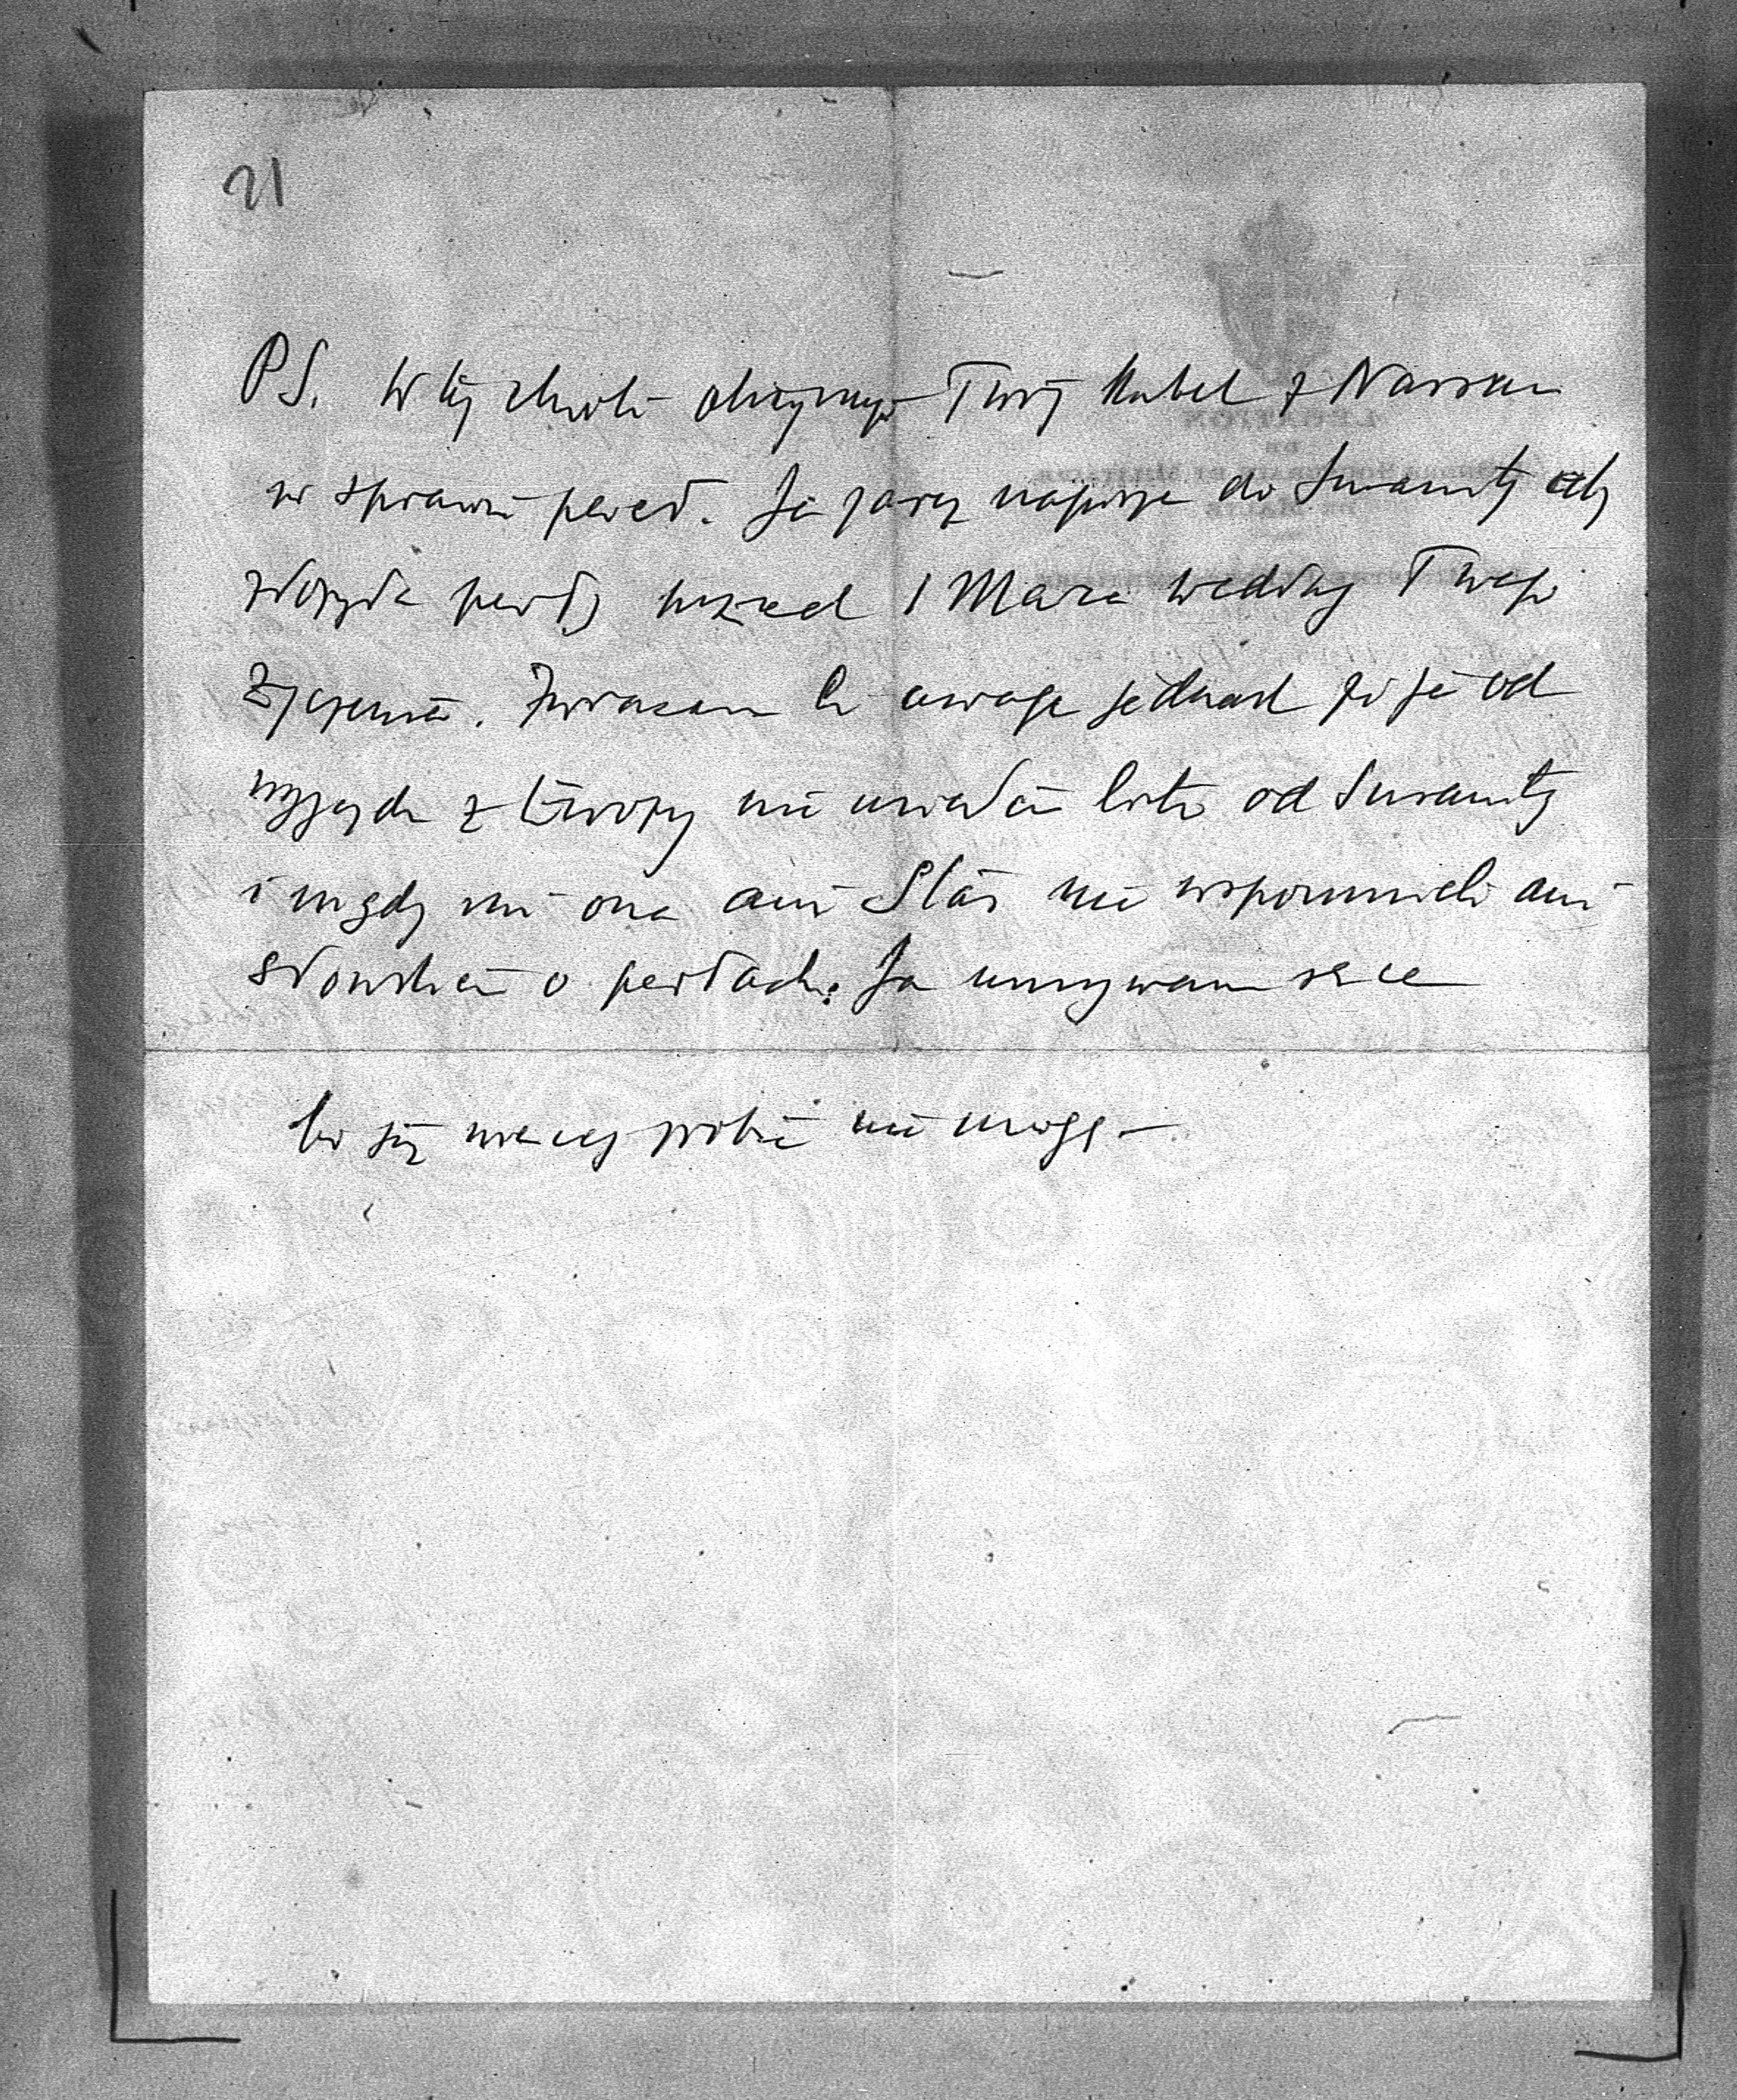 21
PS. W tej chwili otrzymuję Twój Kabel z Nassau
w sprawie pereł. Ja zaraz napiszę do Suzanity aby
złożyła perły przed 1 Marca według Twego
życzenia. Zwracam Ci uwagę jednak że ja od
wyjazdu z Europy nie miałem listu od Suzanity
i nigdy mi ona ani Staś nie wspomnieli ani
słowkiem o perłach. Ja umywam ręce
bo ja więcej zrobić nie mogę —